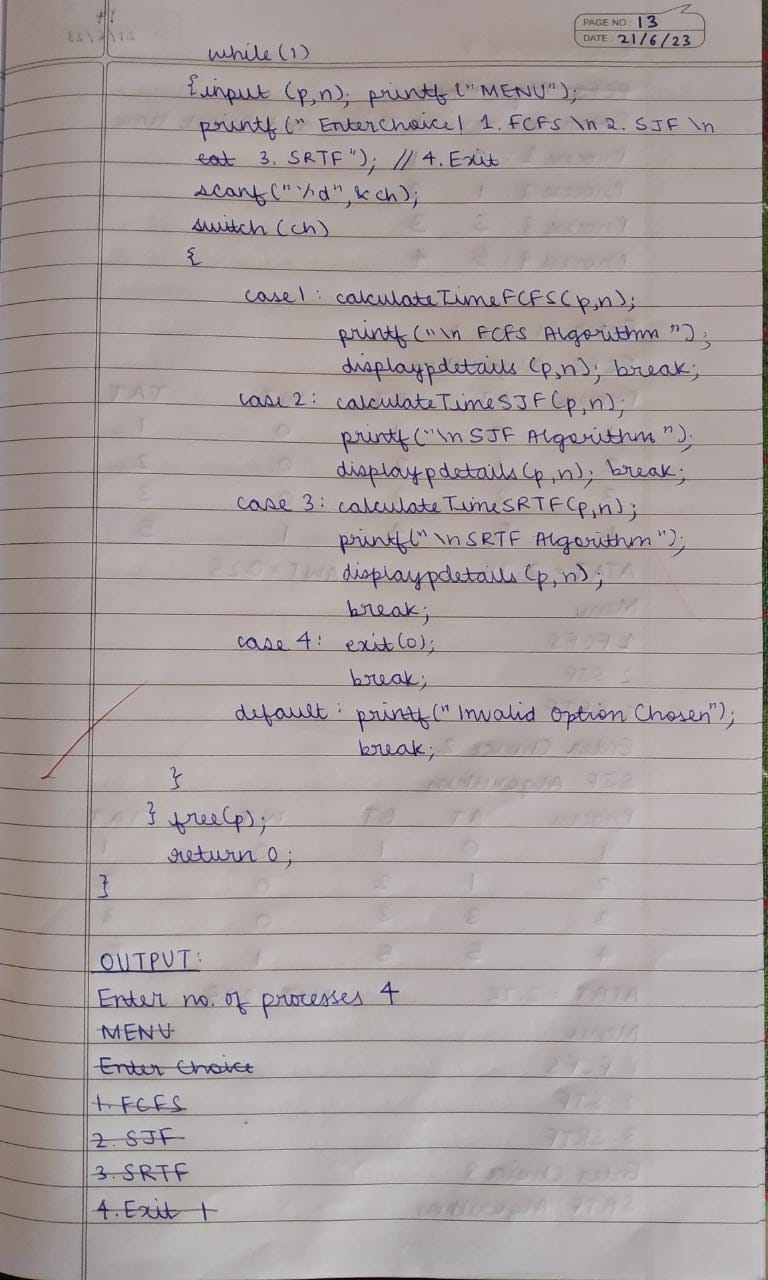 PAGE NO: 13
DATE: 21/6/23
while(1)
{input (p,n); printf("MENU");
printf(" Enter choice| 1. FCFS \n 2. SJF \n
cat 3. SRTF"); // 4. Exit
scanf("%d",&ch);
switch(ch)
{
case1: calculateTimeFCFS(p,n);
printf("\n FCFS Algorithm");
displaypdetails (p,n); break;
case 2: calculateTimeSJF(p,n);
printf("\n SJF Algorithm");
displaypdetails(p,n); break;
case 3: calculateTimeSRTF(p,n);
printf("\n SRTF Algorithm");
displaypdetails (p,n);
break;
case 4: exit(0);
break;
default: printf("Invalid Option Chosen");
break;
}
} free(p);
return 0;
}
OUTPUT:
Enter no. of processes 4
MENU
Enter Choice
1. FCFS
2. SJF
3. SRTF
4. Exit 1